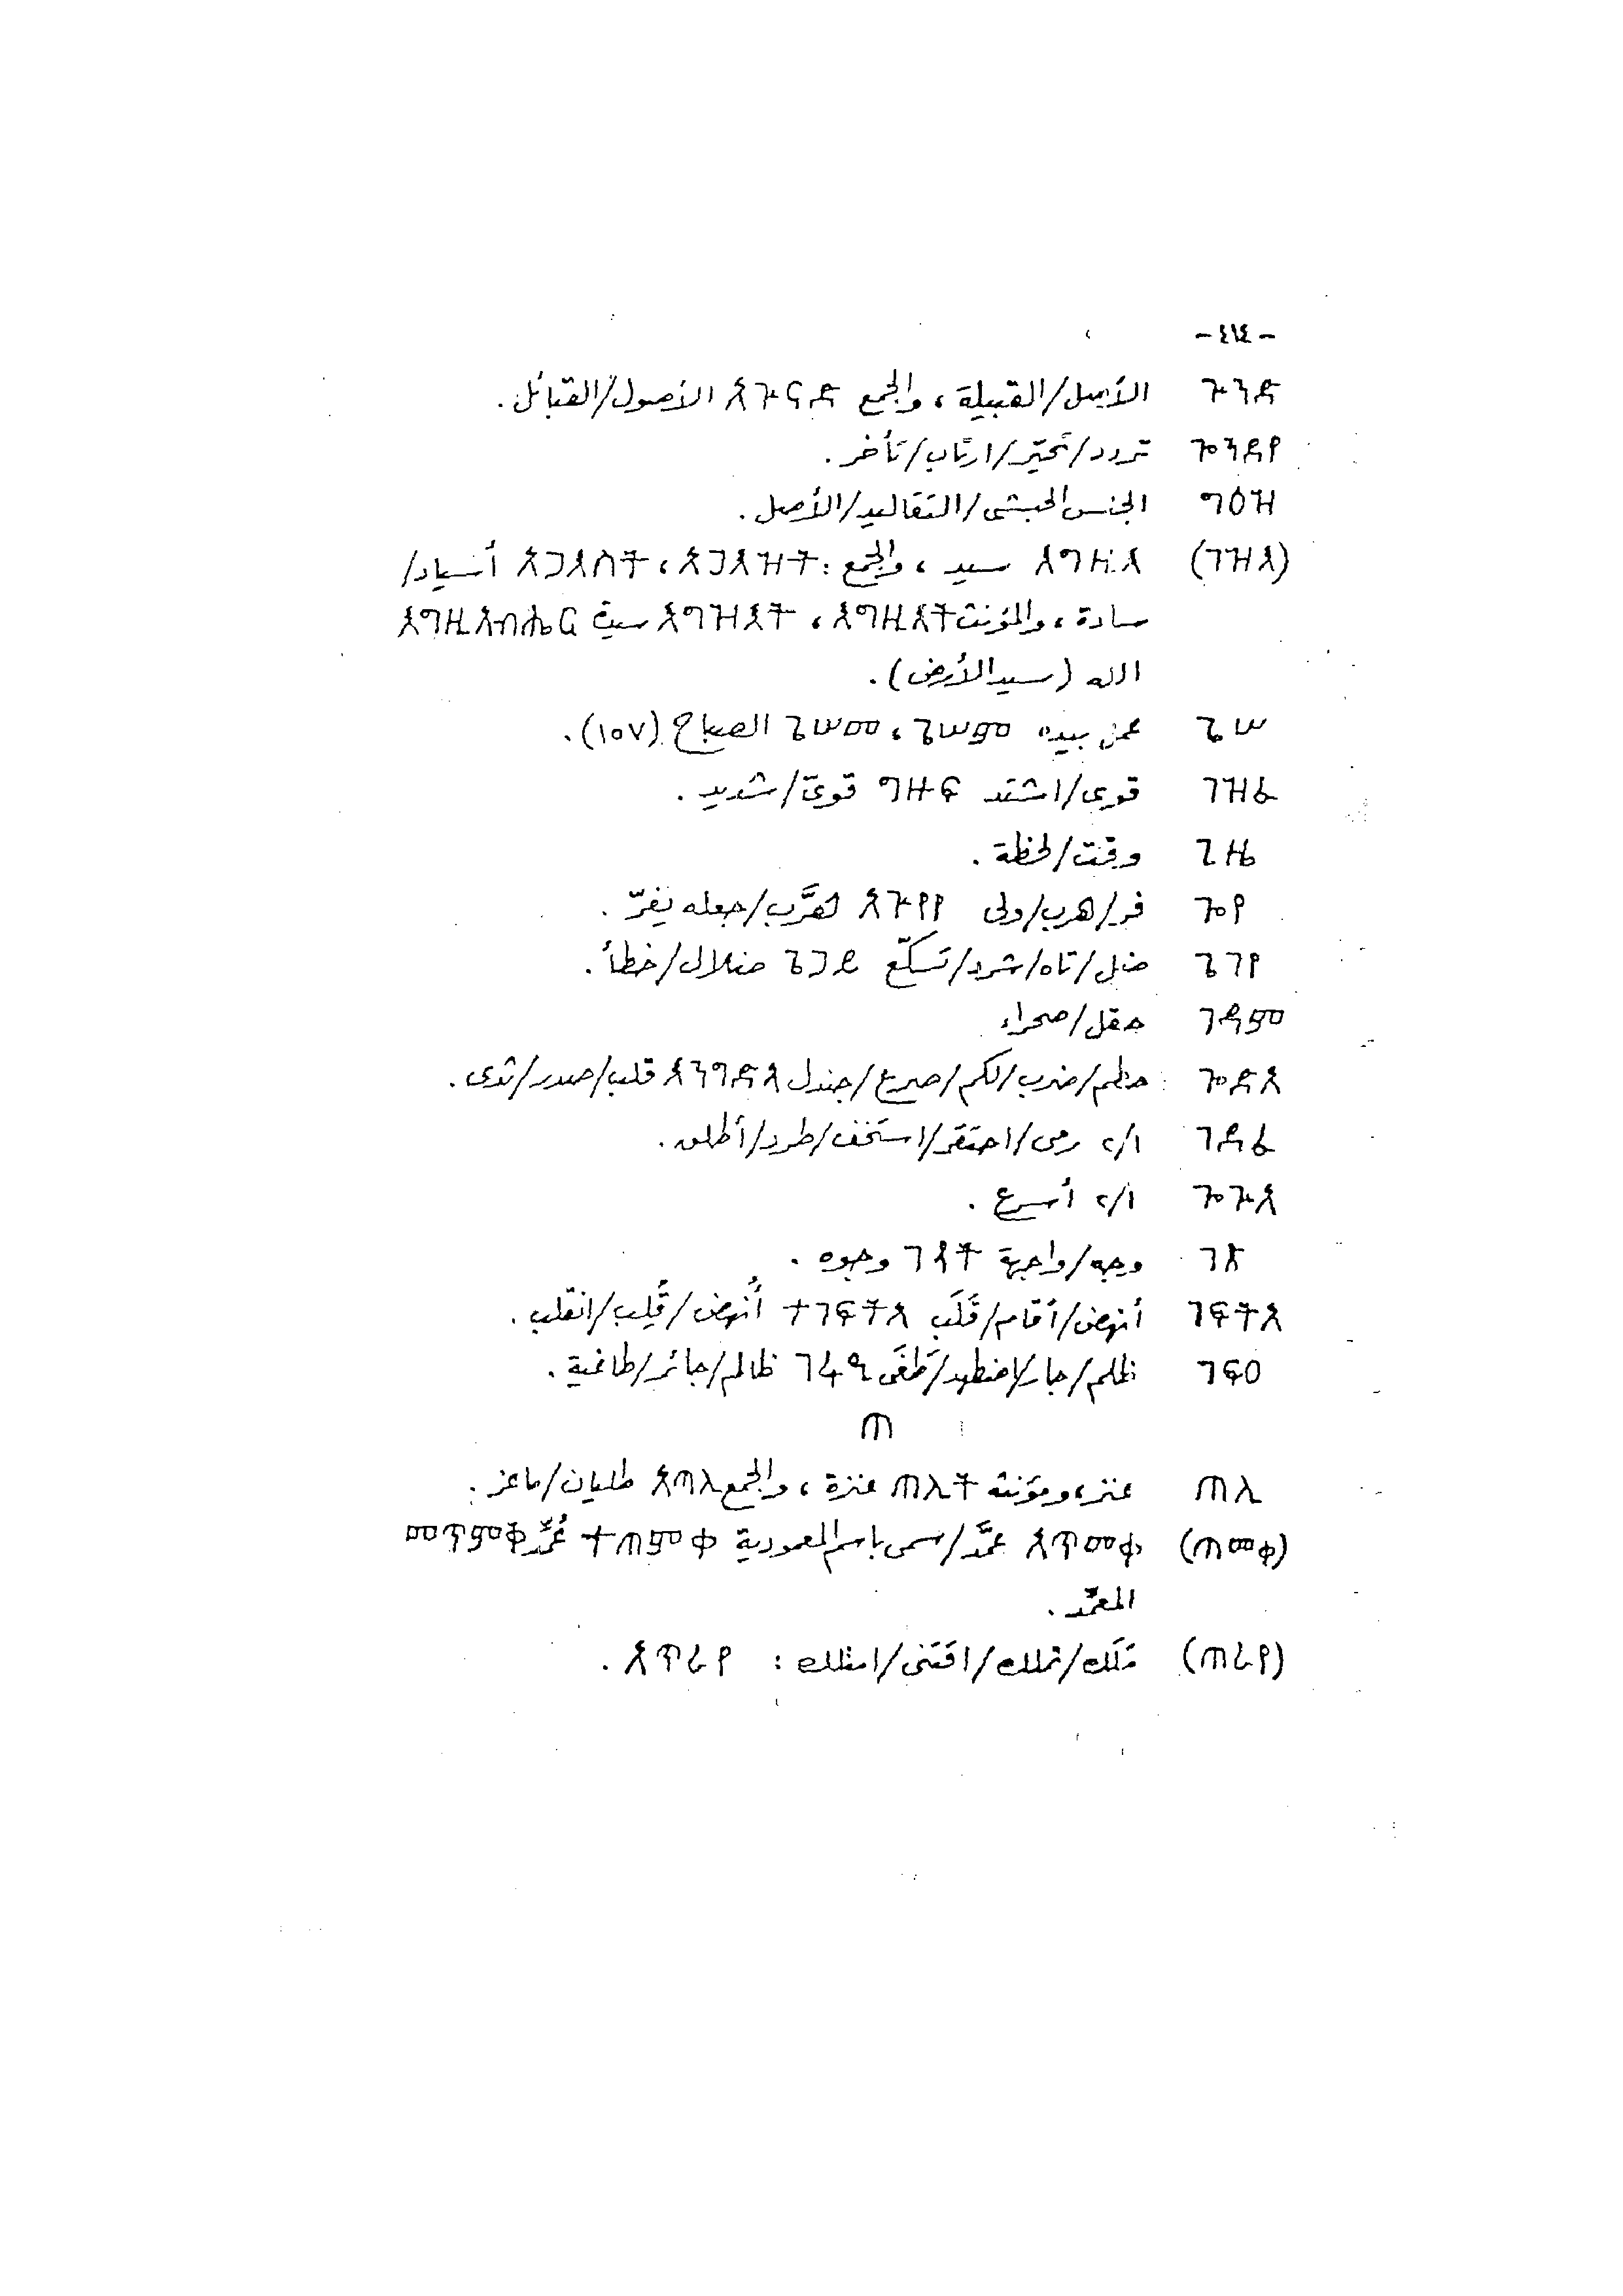 -٤١٤-
ጕንድ الأصل/القبيلة، والجمع አጕናድ الأصول/القبائل.
ጐንደየ تردد/تحيّر/ارتاب/تأخر.
ግዕዝ الجنس الحبشى/التقاليد/الأصل.
(ገዝአ) እግዚእ سيد، والجمع: አጋእዝት، አጋእስት أسياد/
سادة، والمؤنث እግዚእት، እግዝእት سيدة እግዚአብሔር
الله (سيد الأرض).
ጌሠ ጌሠም، ጌሠመ الصباح (١٥٧).
ገዝፈ قوى/اشتد ግዝፍ قوىّ/شديد.
ጊዜ وقت/لحظة.
ጐየ فر/هرب/ولى አጕየየ هَرَّب/جعله يفرّ.
ጌገየ ضل/تاه/شرد/تسكّع ጌጋይ ضلال/خطأ.
ገዳም حقل/صحراء
ጐድአ حطم/ضرب/لكم/صرع/جندل እንግድአ قلب/صدر/ثدى.
ገደፈ ١/٢ رمى/احتقر/استخف/طرد/أطلق.
ጐጕአ ١/٢ أسرع.
ገጽ وجه/واجهة ገጻት وجوه.
ገፍትአ أنهض/أقام/قَلَب ተገፍትአ أُنهض/قُلِب/انقلب.
ገፍዐ ظلم/جار/اضطهد/طَغَى ገፋዒ ظالم/جائر/طاغية.
ጠ
ጠሊ عنز، ومؤنثه ጠሊት عنزة، والجمع አጠሊ طليان/ماعز.
(ጠመቀ) አጥመቀ عمَّد/سمى باسم المعمودية ተጠምቀ عُمِّد መጥምቅ
المعمَّد.
(ጠረየ) مَلَك/تملك/اقتنى/امتلك: አጥረየ.